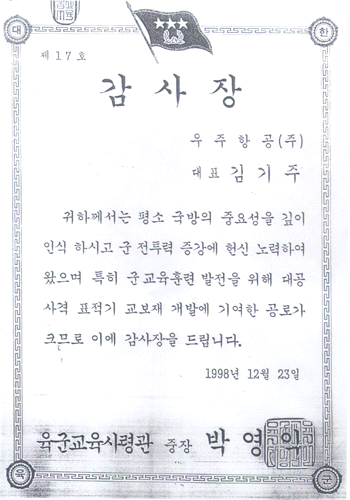 제 17 호
감 사 장
우 주 항 공 (주)
대 표 김 기 주
귀하께서는 평소 국방의 중요성을 깊이
인식 하시고 군 전투력 증강에 헌신 노력하여
왔으며 특히 군교육훈련 발전을 위해 대공
사격 표적기 교보재 개발에 기여한 공로가
크므로 이에 감사장을 드립니다.
1998년 12월 23일
육군교육사령관 중장 박 영 익
대
한
육
군